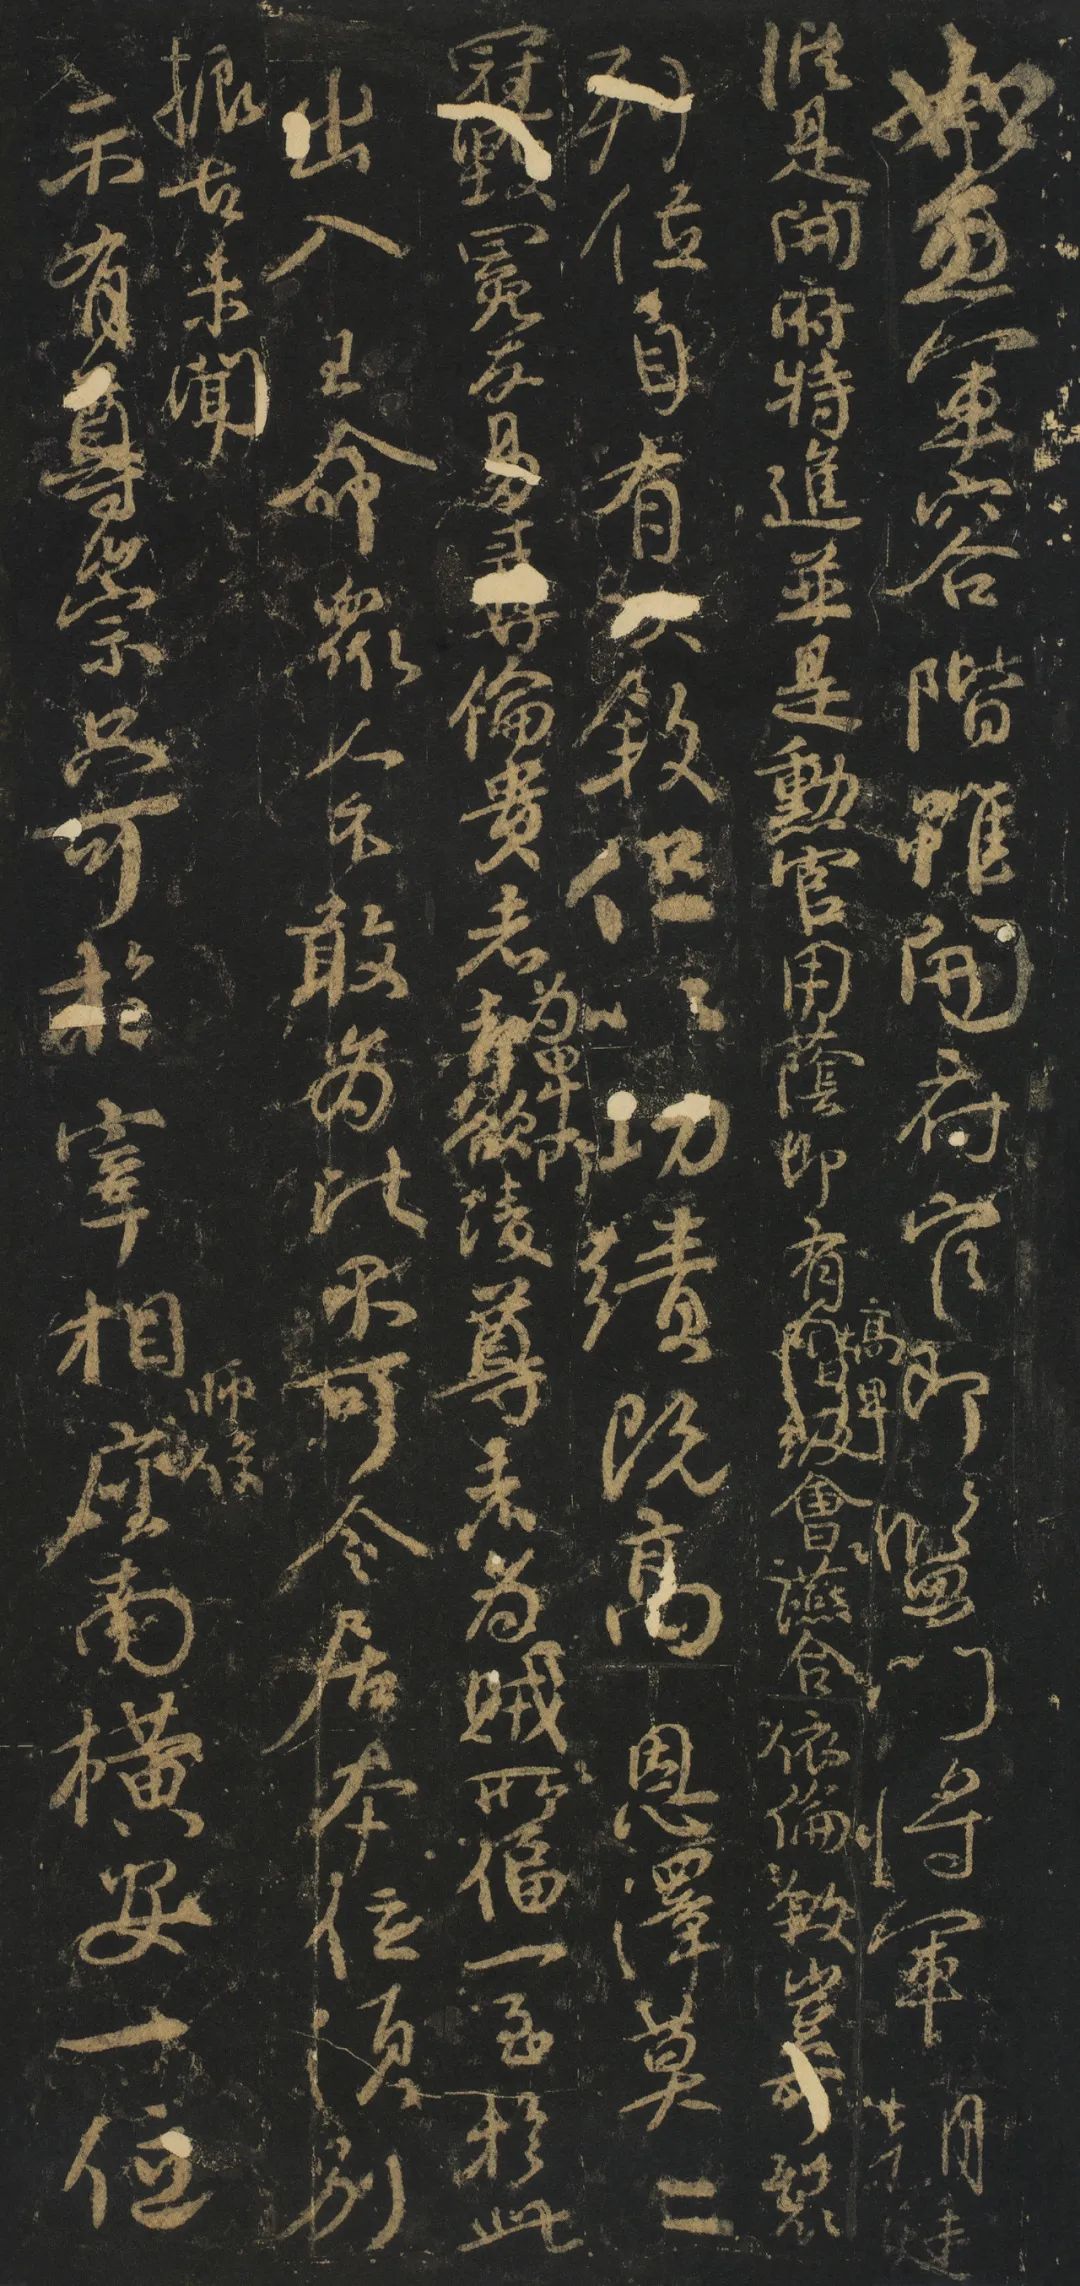 如魚軍容階雖開府官即監門將軍朝廷
縱是開府特進並是勳官用蔭即有階級會讌合依倫敘豈可裂
高卑
列位自有次敘但以功績既高恩澤莫二
冠毀冕反易彝倫貴者陵尊者為賊所偪一至於此
為卑所
出入王命眾人不敢為比不可令居本位須別
振古未聞
師保
示有尊崇只可於宰相座南橫安一位